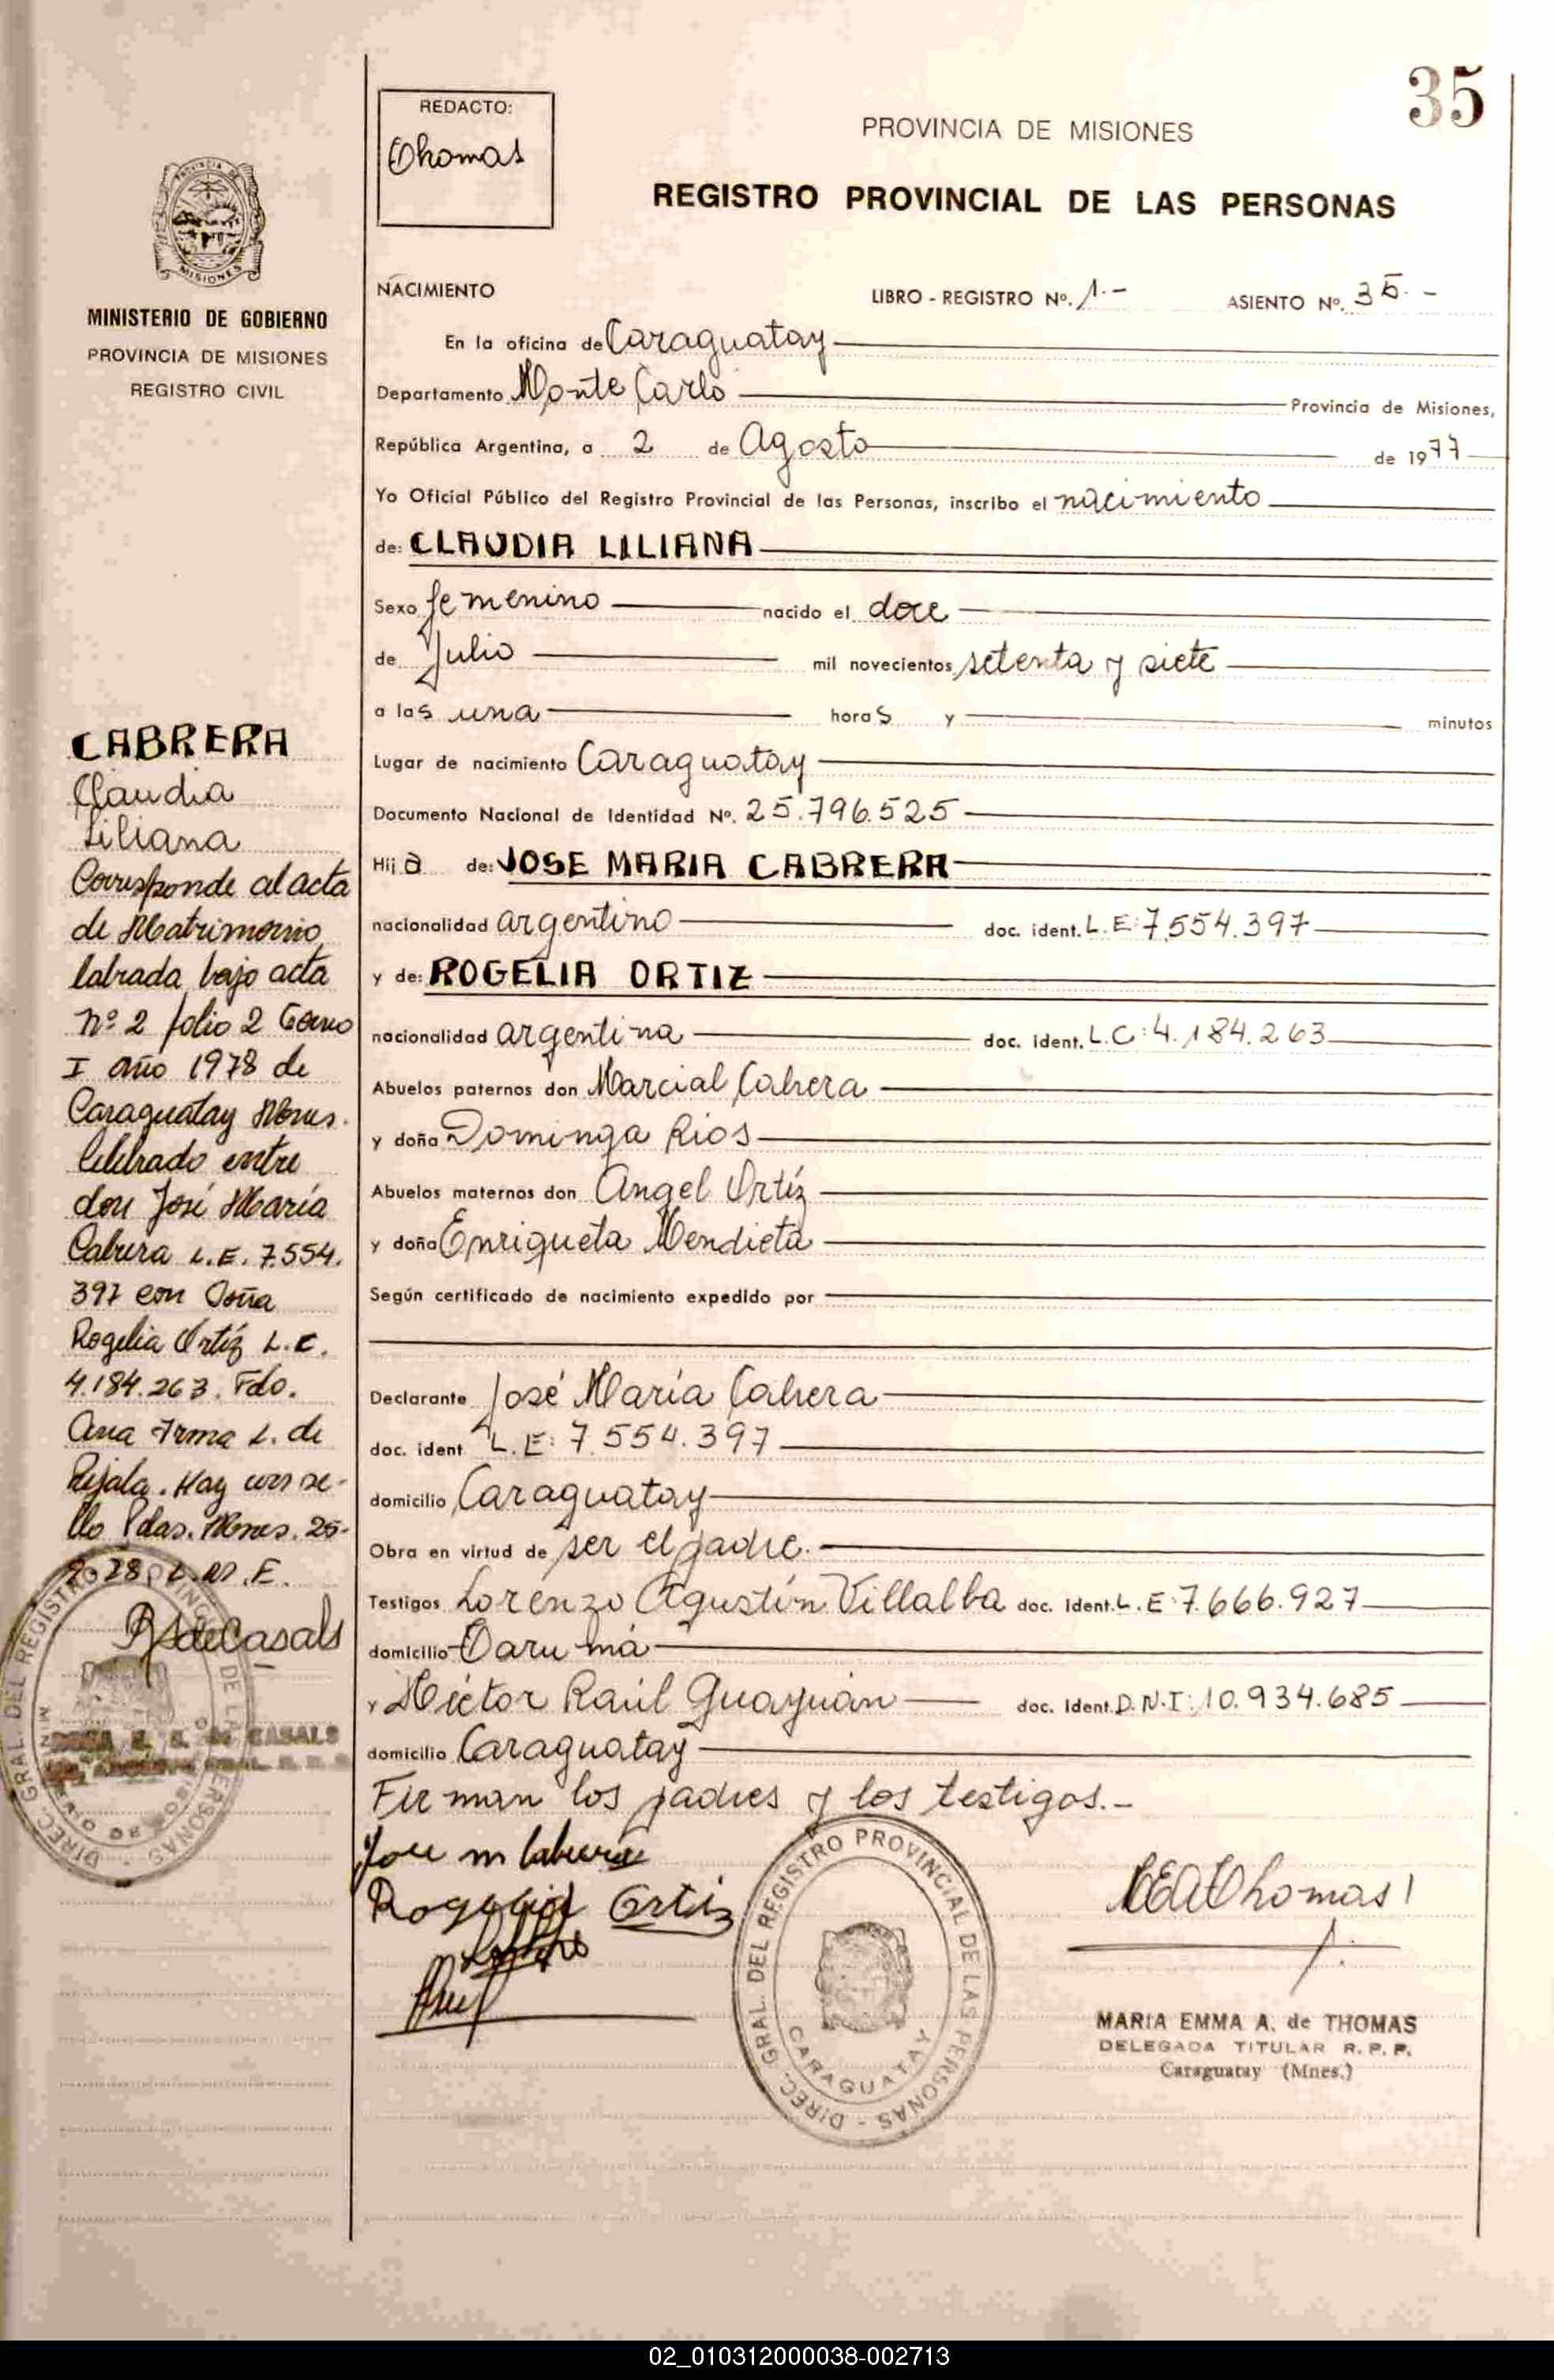 35
REDACTO:
Thomas
PROVINCIA DE MISIONES
REGISTRO PROVINCIAL DE LAS PERSONAS
NACIMIENTO LIBRO - REGISTRO Nº. 1.- ASIENTO Nº. 35.-
En la oficina de Caraguatay
Departamento Monte Carlo Provincia de Misiones,
República Argentina, a 2 de Agosto de 1977
Yo Oficial Público del Registro Provincial de las Personas, inscribo el nacimiento
de: CLAUDIA LILIANA
Sexo femenino nacido el doce
de Julio mil novecientos setenta y siete
a las una horas y minutos
Lugar de nacimiento Caraguatay
Documento Nacional de Identidad Nº. 25.796.525
Hija de: JOSE MARIA CABRERA
nacionalidad argentino doc. ident. L.E: 7.554.397
y de: ROGELIA ORTIZ
nacionalidad argentina doc. ident. L.C: 4.184.263
Abuelos paternos don Marcial Cabrera
y doña Dominga Rios
Abuelos maternos don Angel Ortíz
y doña Enriqueta Mendieta
Según certificado de nacimiento expedido por
Declarante José María Cabrera
doc. ident L.E: 7.554.397
domicilio Caraguatay
Obra en virtud de ser el padre.
Testigos Lorenzo Agustín Villalba doc. Ident. L.E: 7.666.927
domicilio Tarumá
y Héctor Raúl Guayuán doc. Ident. D.N.I: 10.934.685
domicilio Caraguatay
Firman los padres y los testigos.-
Jose m Cabrera
Rogelia Ortiz
DIREC. GRAL. DEL REGISTRO PROVINCIAL DE LAS PERSONAS -
CARAGUATAY
MEAThomas
MARIA EMMA A. de THOMAS
DELEGADA TITULAR R. P. P.
Caraguatay (Mnes.)
PROVINCIA DE
MISIONES
MINISTERIO DE GOBIERNO
PROVINCIA DE MISIONES
REGISTRO CIVIL
CABRERA
Claudia
Liliana
Corresponde al acta
de Matrimonio
labrada bajo acta
nº 2 folio 2 Tomo
I año 1978 de
Caraguatay Mnes.
Celebrado entre
don José María
Cabrera L.E. 7.554.
397 con Doña
Rogelia Ortíz L.C.
4.184.263. Fdo.
Ana Irma L. de
Rijala. Hay un se-
llo Pdas. Mnes. 25-
RSdeCasals
DIREC. GRAL. DEL REGISTRO PROVINCIAL DE LAS PERSONAS -
de CASALS
02_010312000038-002713